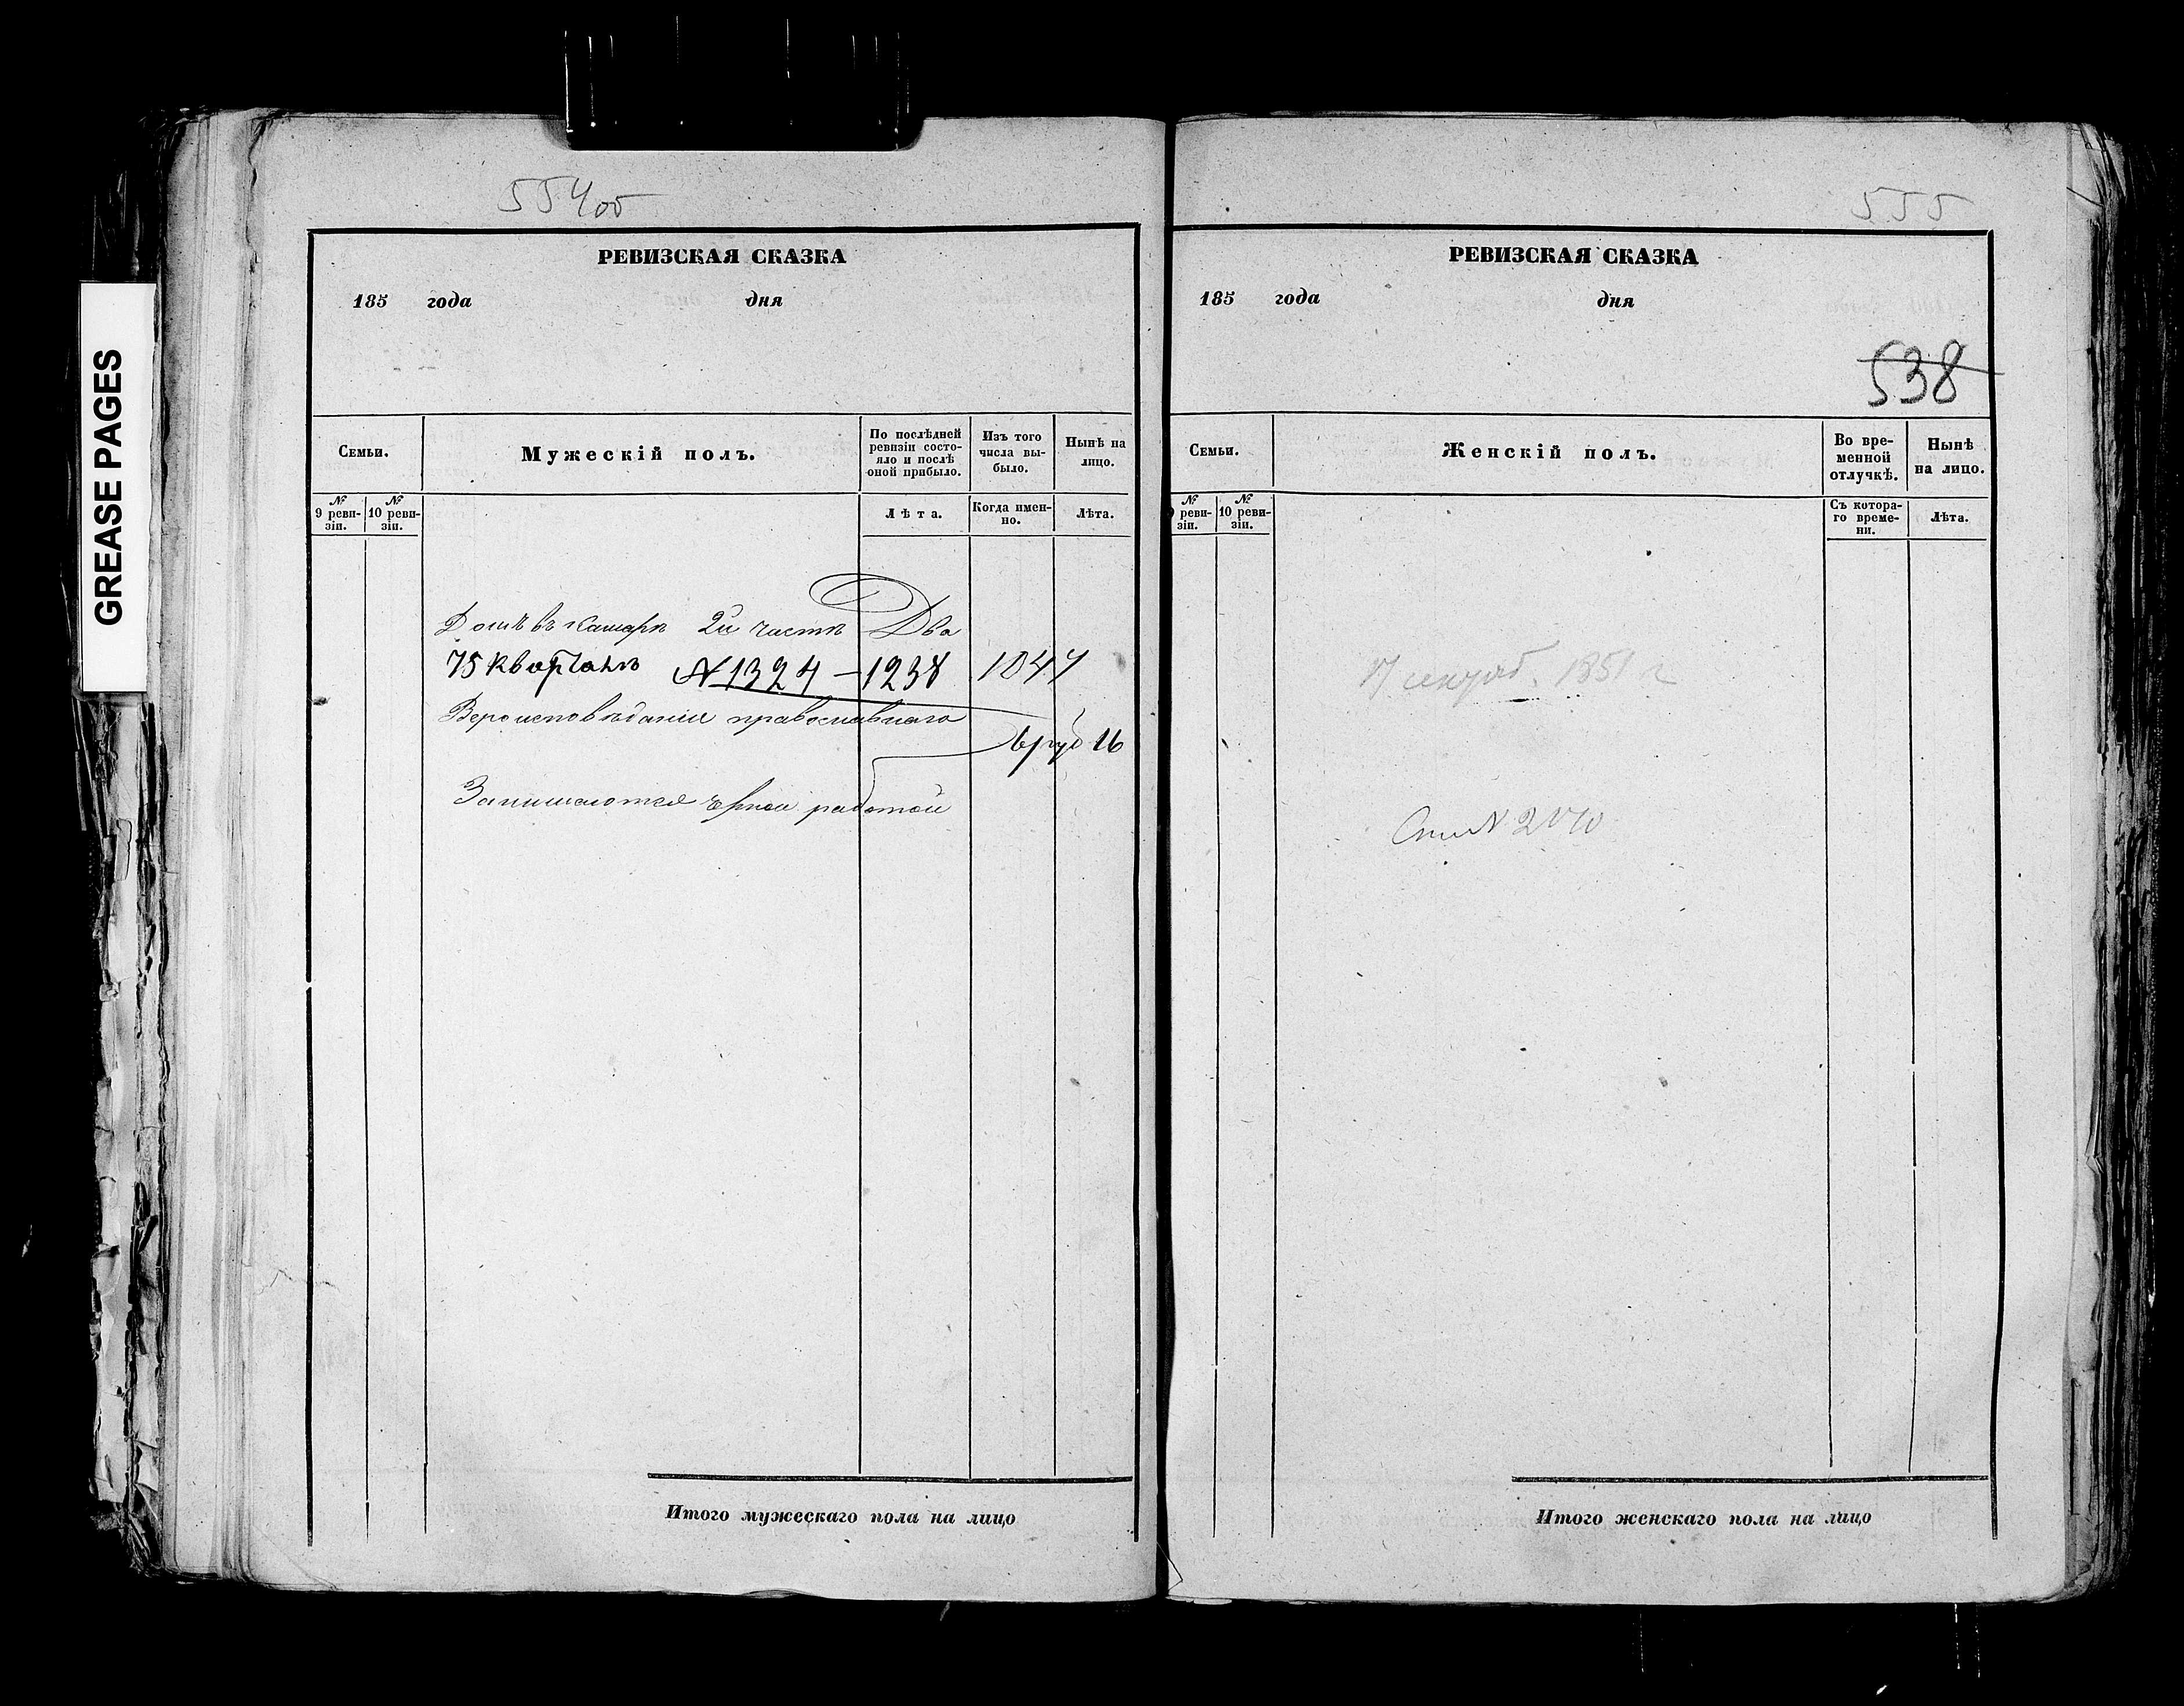 GREASE PAGES
554об
РЕВИЗСКАЯ СКАЗКА
185 года дня
Семьи.
Мужескій полъ.
По послѣдней ревизіи состо-
яло и послѣ оной прибыло.
Изъ того числа вы-
было.
Нынѣ на лицо.
№ 9 реви-
зіи.
№ 10 реви-
зіи.
Лѣта.
Когда имен-
но.
Лѣта.
Домъ въ 2й части Два
75 Кварталъ № 1324 — 1238 1044
Вероисповѣданія православнаго
руб 16
Занимаются работой
Итого мужескаго пола на лицо
555
РЕВИЗСКАЯ СКАЗКА
185 года дня
538
Семьи.
Женскій полъ.
Во вре-
менной
отлучкѣ.
Нынѣ
на лицо.
9 реви-
зіи.
№ 10 реви-
зіи.
Съ котора-
го време-
ни.
Лѣта.
1851 г
Итого женскаго пола на лицо